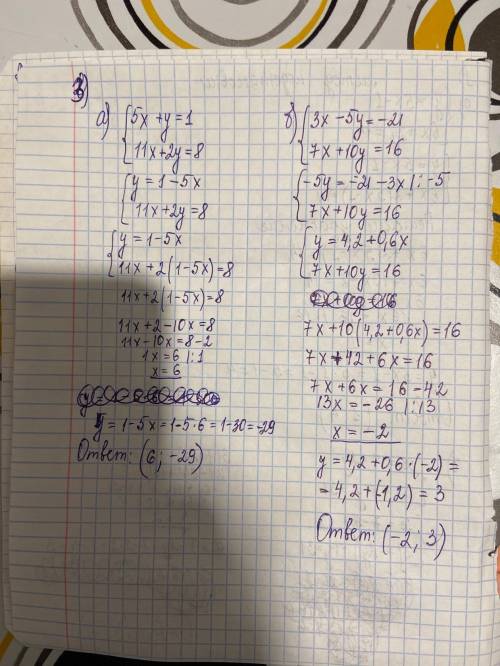 3)
а) { 5x + y = 1
11x + 2y = 8
{ y = 1 - 5x
11x + 2y = 8
{ y = 1 - 5x
11x + 2(1 - 5x) = 8
11x + 2(1 - 5x) = 8
11x + 2 - 10x = 8
11x - 10x = 8 - 2
1x = 6 |:1
x = 6
y = 1 - 5x = 1 - 5·6 = 1 - 30 = -29
Ответ: (6; -29)
б) { 3x - 5y = -21
7x + 10y = 16
{ -5y = -21 - 3x |: -5
7x + 10y = 16
{ y = 4,2 + 0,6x
7x + 10y = 16
7x + 10(4,2 + 0,6x) = 16
7x + 42 + 6x = 16
7x + 6x = 16 - 42
13x = -26 |:13
x = -2
y = 4,2 + 0,6·(-2) =
= 4,2 + (-1,2) = 3
Ответ: (-2; 3)